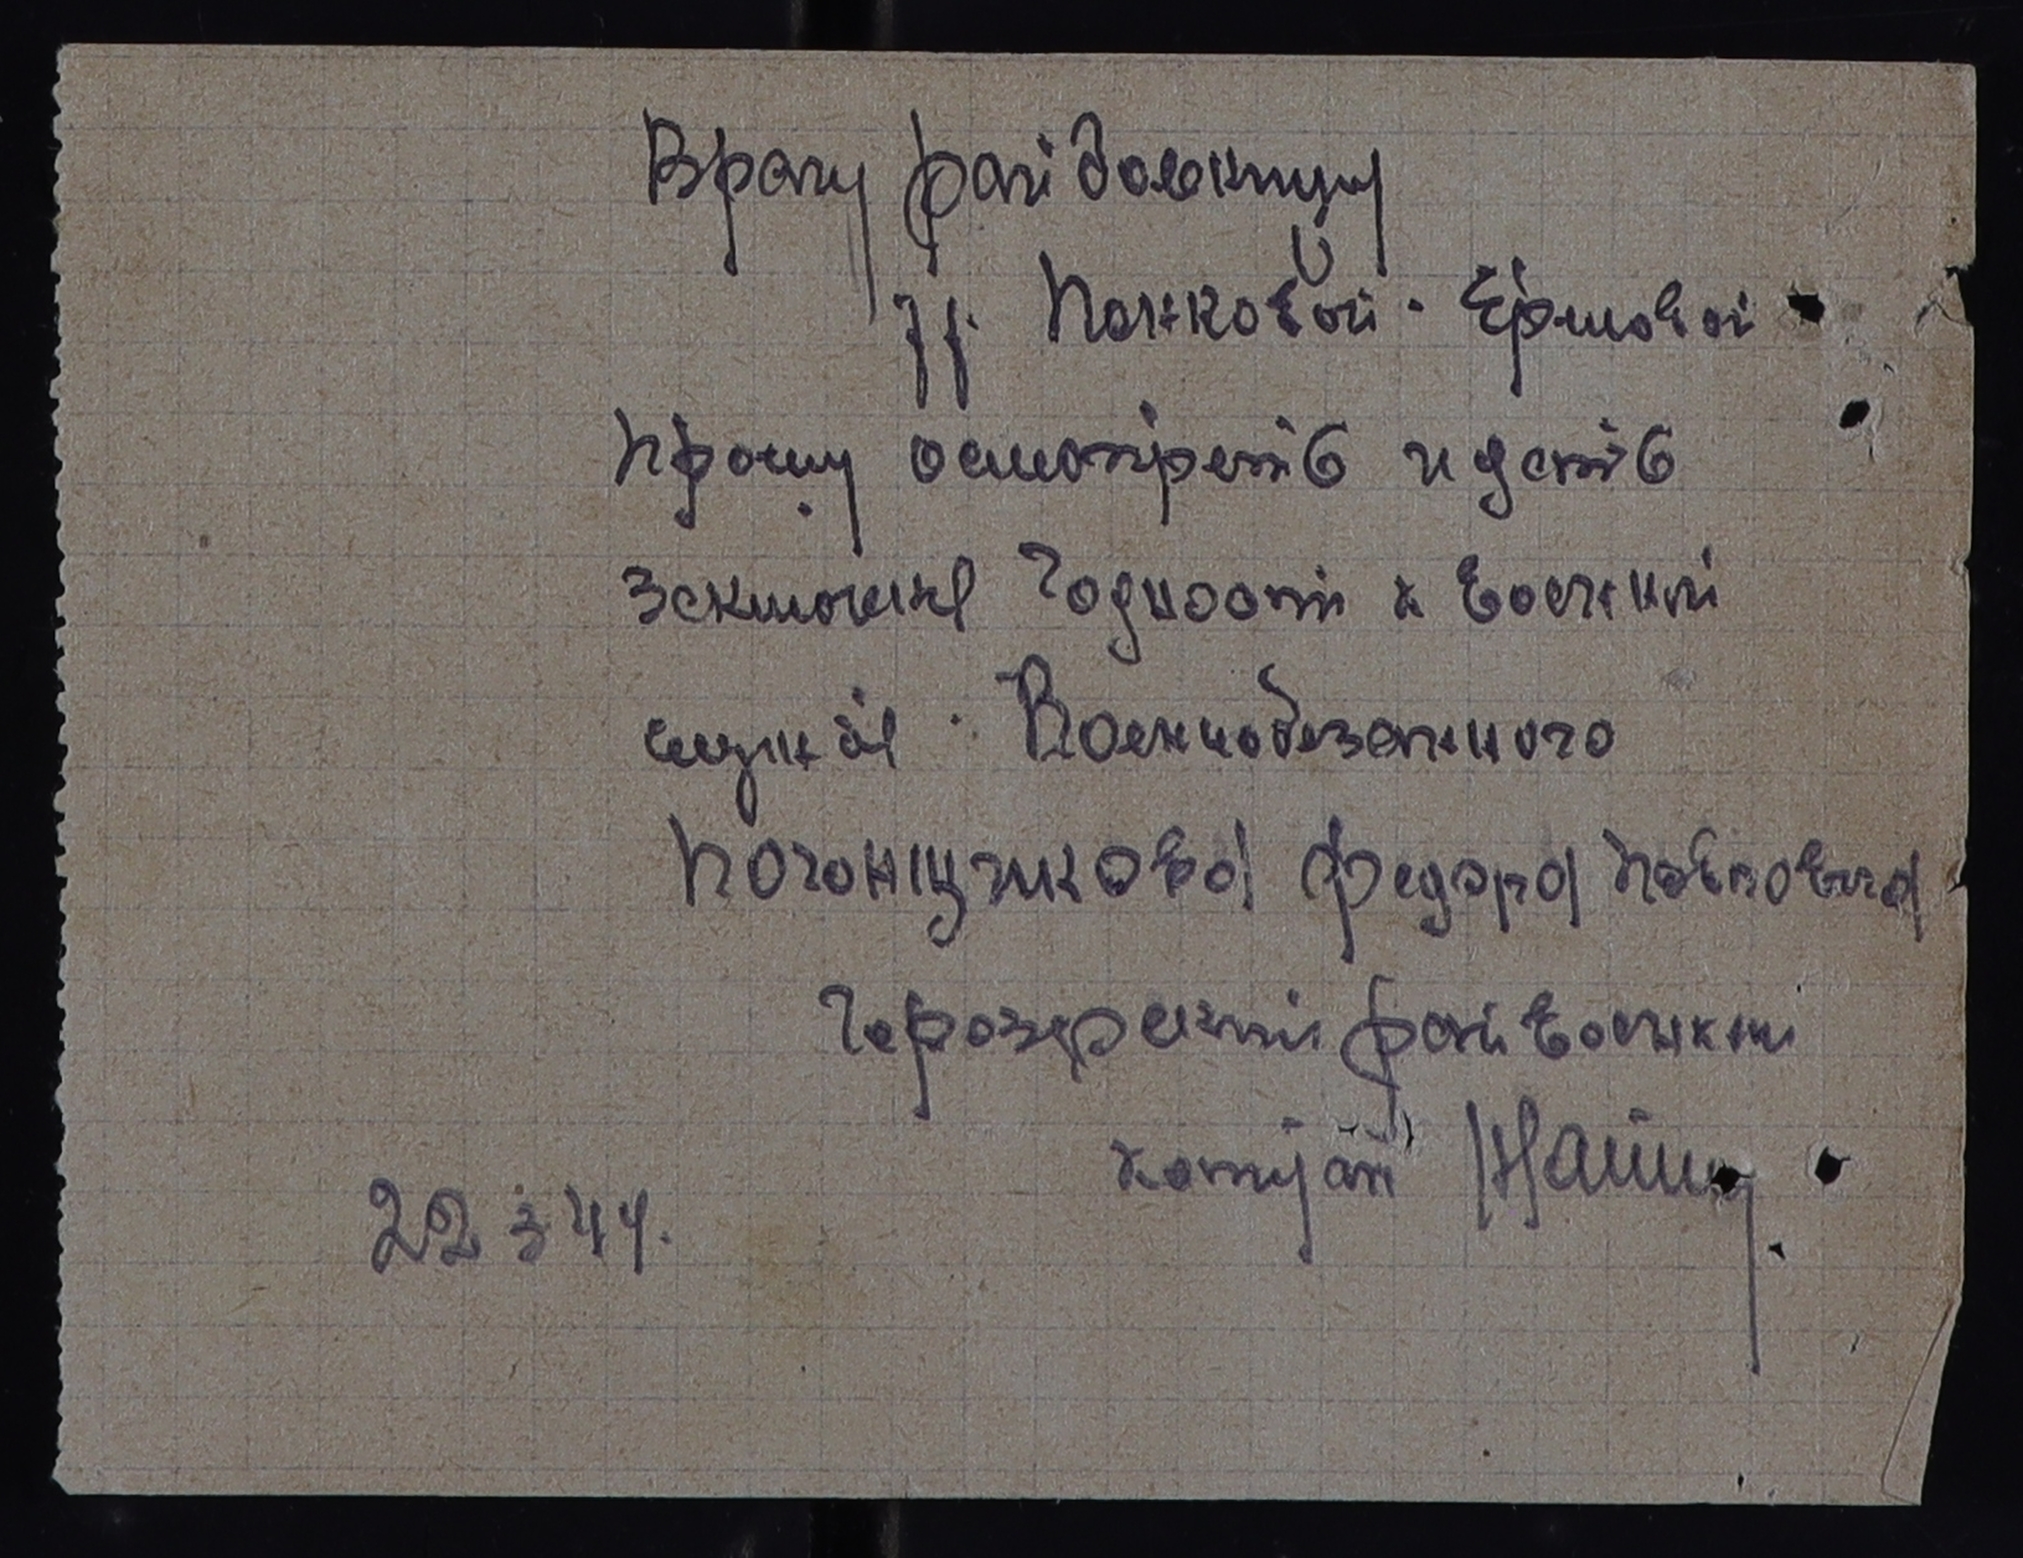 Врачу райбольницы
т.т. Панковой. Ершовой
Прошу осмотреть и дать
заключение годности к военной
службе. Военнообязанного
Погонщикова Федора Павловича
райвоенком
капитан
22 3 44.